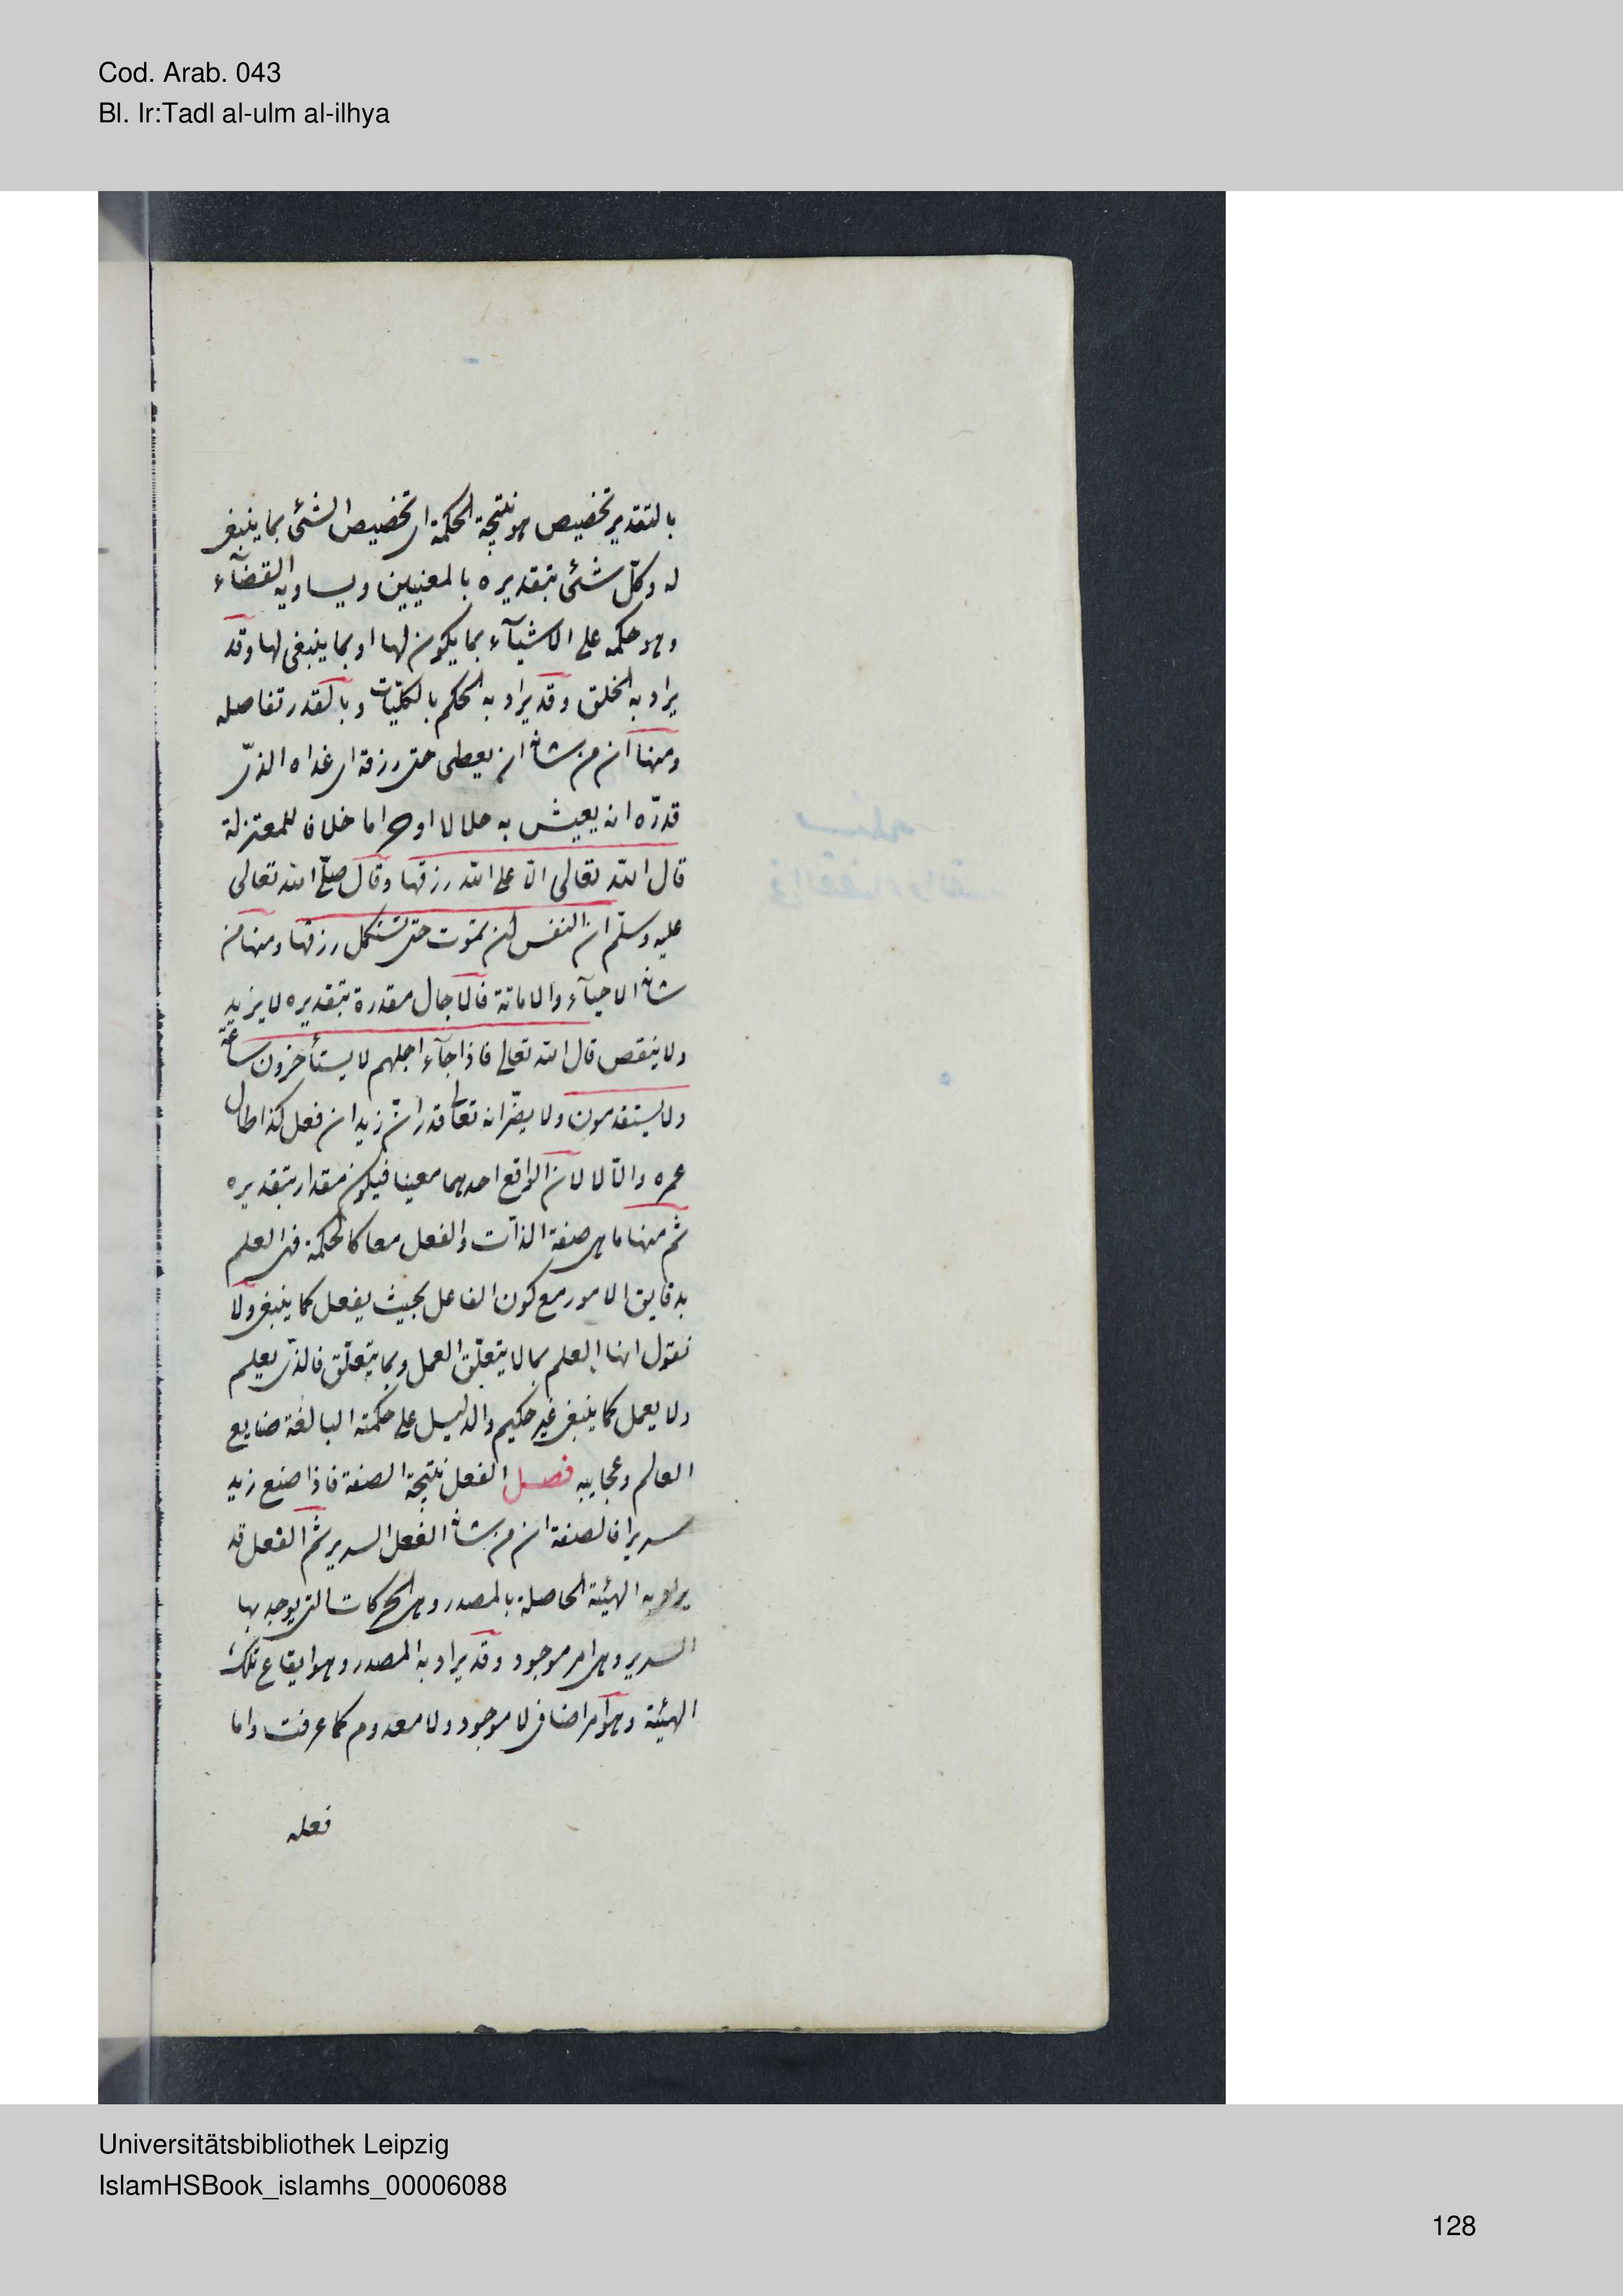 Cod. Arab. 043
Bl. Ir:Tadl al-ulm al-ilhya
بالتقدير تخصيص هو نتيجة الحكمة اى تخصيص الشئ بما ينبغى
له وكل شئ بتقديره بالمعنيين ويساويه القضآء
وهو حكمه على الاشيآء بما يكون لها او بما ينبغى لها وقد
يراد به الخلق وقد يراد به الحكم بالكليّات وبالقدر تفاصله
ومنها ان من شانه ان يعطى حتى رزقه اى غداه الذى
قدّره انه يعيش به حلالا او حراما خلاف للمعتزلة
قال الله تعالى الا على الله رزقها وقال صلّى الله تعالى
عليه وسلّم ان النفس لن تموت حتى تستكمل رزقها ومنها من
شانه الاحيآء والاماتة فالاجال مقدرة بتقديره لا يزيد
ولا ينقص قال الله تعالى فاذا جآء اجلهم لا يستأخرون ساعة
ولا يستقدمون ولا يضر انه تعالى قدر انّ زيدا ان فعل كذا طال
عمره والّا لا لان الواقع احدهما معينا فيكون مقدار بتقديره
ثم منها ما هى صفة الذآت والفعل معا كالحكمة فهى العلم
بدقايق الامور مع كون الفاعل بحيث يفعل كما ينبغى ولا
نقول انها العلم بما لا يتعلّق العمل وبما يتعلّق فالذى يعلم
ولا يعمل كما ينبغى غير حكيم والدليل على حكمته البالغة صنايع
العالم وعجايبه فصل الفعل نتيجة الصفة فاذا صنع زيد
سريرا فالصفة ان من شانه الفعل السرير ثم الفعل قد
يراد به الهيئة الحاصلة بالمصدر وهى الحركات التى يوجد بها
السرير وهى امر موجود وقد يراد به المصدر وهو ايقاع تلك
الهيئة وهو امر اضافى لا موجود ولا معدوم كما عرفت واما
فعله
Universitätsbibliothek Leipzig
IslamHSBook_islamhs_00006088
128